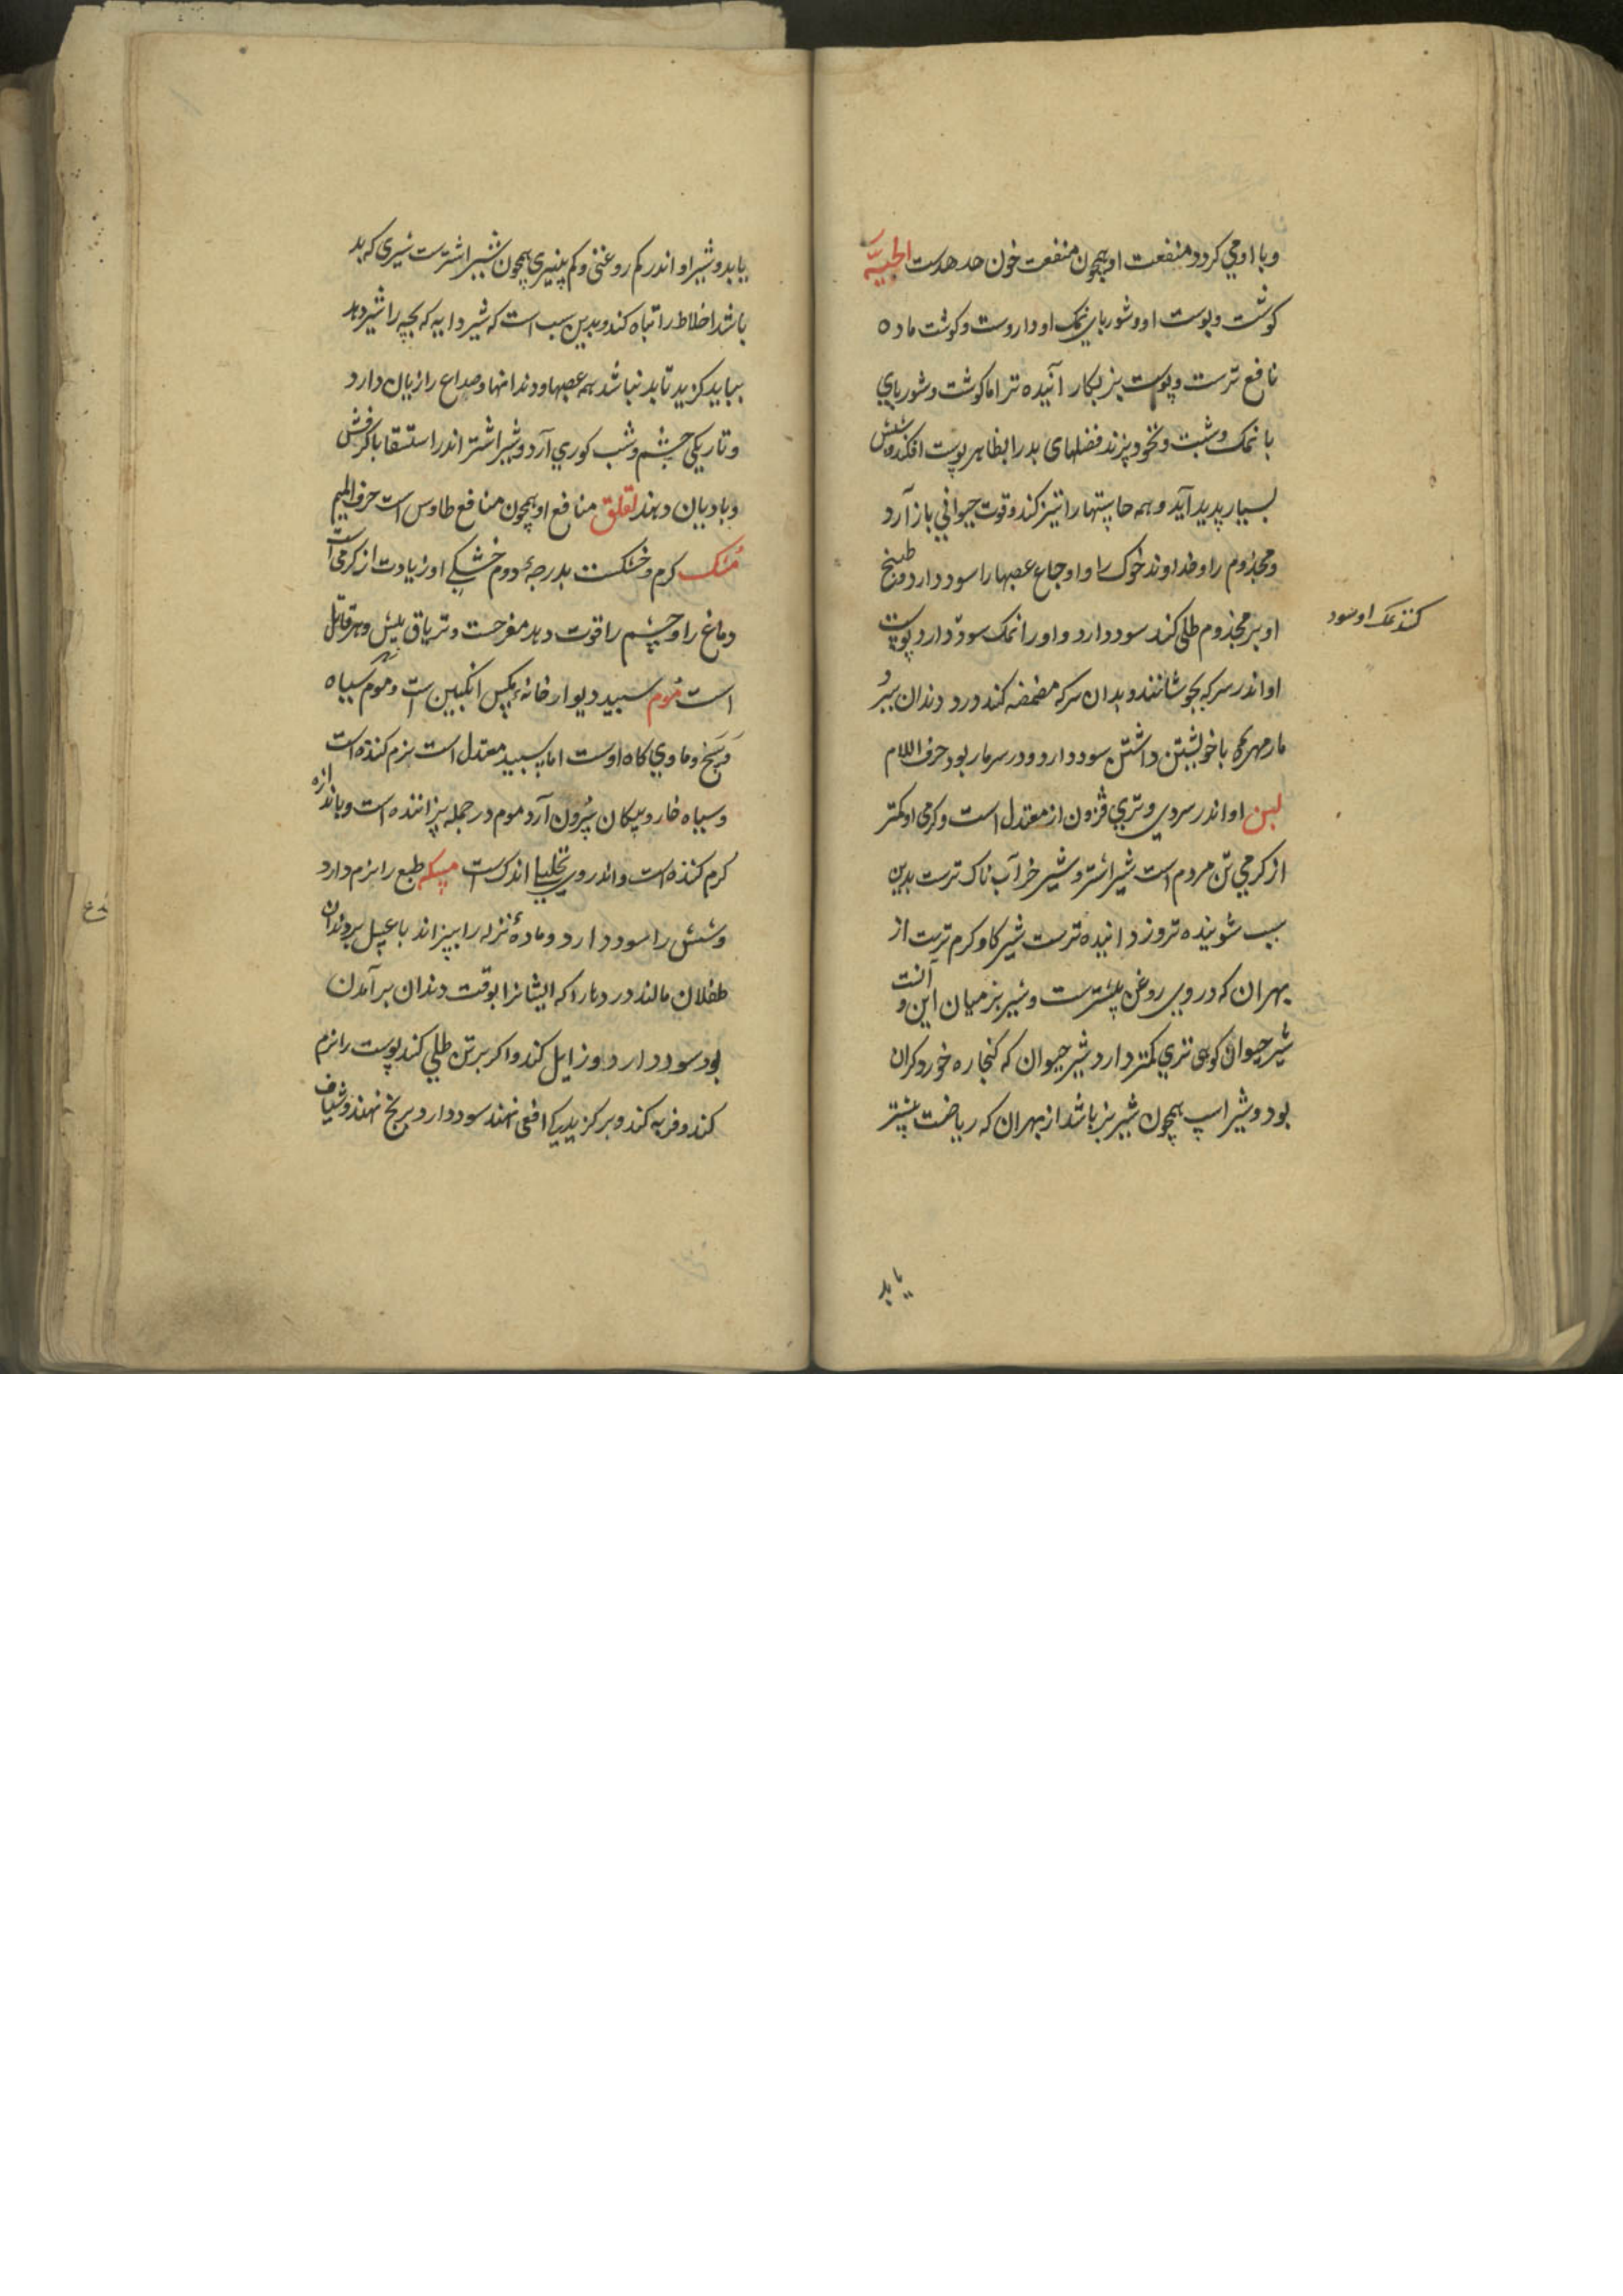 وبا او می کردد منفعت او همچون منفعت خون هدهدست الحیّة
کوشت وپوست او وشوربای نمک او داروست وکوشت ماده
نافع ترست وپوست نیز بکار آئیده تر اما کوشت وشوربای
با نمک وشبت ونخود پزند فضلهای بد را بظاهر پوست افکند وشبش
بسیار پدید آید وهمه حاستها را تیز کند وقوت جوانی باز آرد
ومجذوم را وخداوند خوک را واوجاع عصبها را سود دارد وطبیخ
او بر مجذوم طلی کند سود دارد واو را نمک سود دارد پوست
کنند نمک او سود
او اندر سرکه بجوشانند وبدان سرکه مضمضه کند درد دندان ببرد
مار مهره با خویشتن داشتن سود دارد ودر سر مار بود حرف اللام
لبن او اندر سردی وتری فزون از معتدل است وکرمی او کمتر
از کرمی تن مردم است شیر اشتر وشیر خر آب ناک ترست بدین
سبب شوینده تر وزدانیده ترست شیر کاو کرم ترست از
بهر آن که در وی روغن بیشترست وشیر بز میان این وآنست
شیر حیوان کوهی تری کمتر دارد شیر حیوان که کنجاره خورد کران
بود وشیر اسپ همچون شیر بز باشد از بهر آن که ریاضت بیشتر
یابد
یابد وشیر او اندر کم روغنی وکم پنیری همچون شیر اشترست شیری که بد
باشد اخلاط را تباه کند وبدین سبب است که شیر دایه که بچه را شیر دهد
بباید کزید تا بد نباشد همه عصبها ودندانها وصداع را زیان دارد
وتاریکی چشم وشب کوری آرد وشیر اشتر اندر استسقا با کرفش
وبادیان دهند لقلق منافع او همچون منافع طاوس است حرف المیم
مُشک کرم وخشکست بدرجهٔ دوم خشکی او زیادت از کرمی است
دماغ را وچشم را قوت دهد مفرحست وتریاق بیش وزهر قاتل
است موم سپید دیوار خانهٔ مکس انکبین است وموم سیاه
وسخ وماوی کاه اوست اما سپید معتدل است نرم کننده است
وسیاه خار وپیکان بیرون آرد موم در جمله پزاننده است وباندازه
کرم کننده است واندر وی تحلیل اندک است مسکه طبع را نرم دارد
وشش را سود دارد ومادهٔ نزله را بپزاند با عسل بر دندان
طفلان مالند دردها را که ایشانرا بوقت دندان بر آمدن
بود سود دارد وزایل کند واکر بر تن طلی کند پوست را نرم
کند وفربه کند وبر کزیدیکی افعی نهند سود دارد بریخ نهند وشیاف